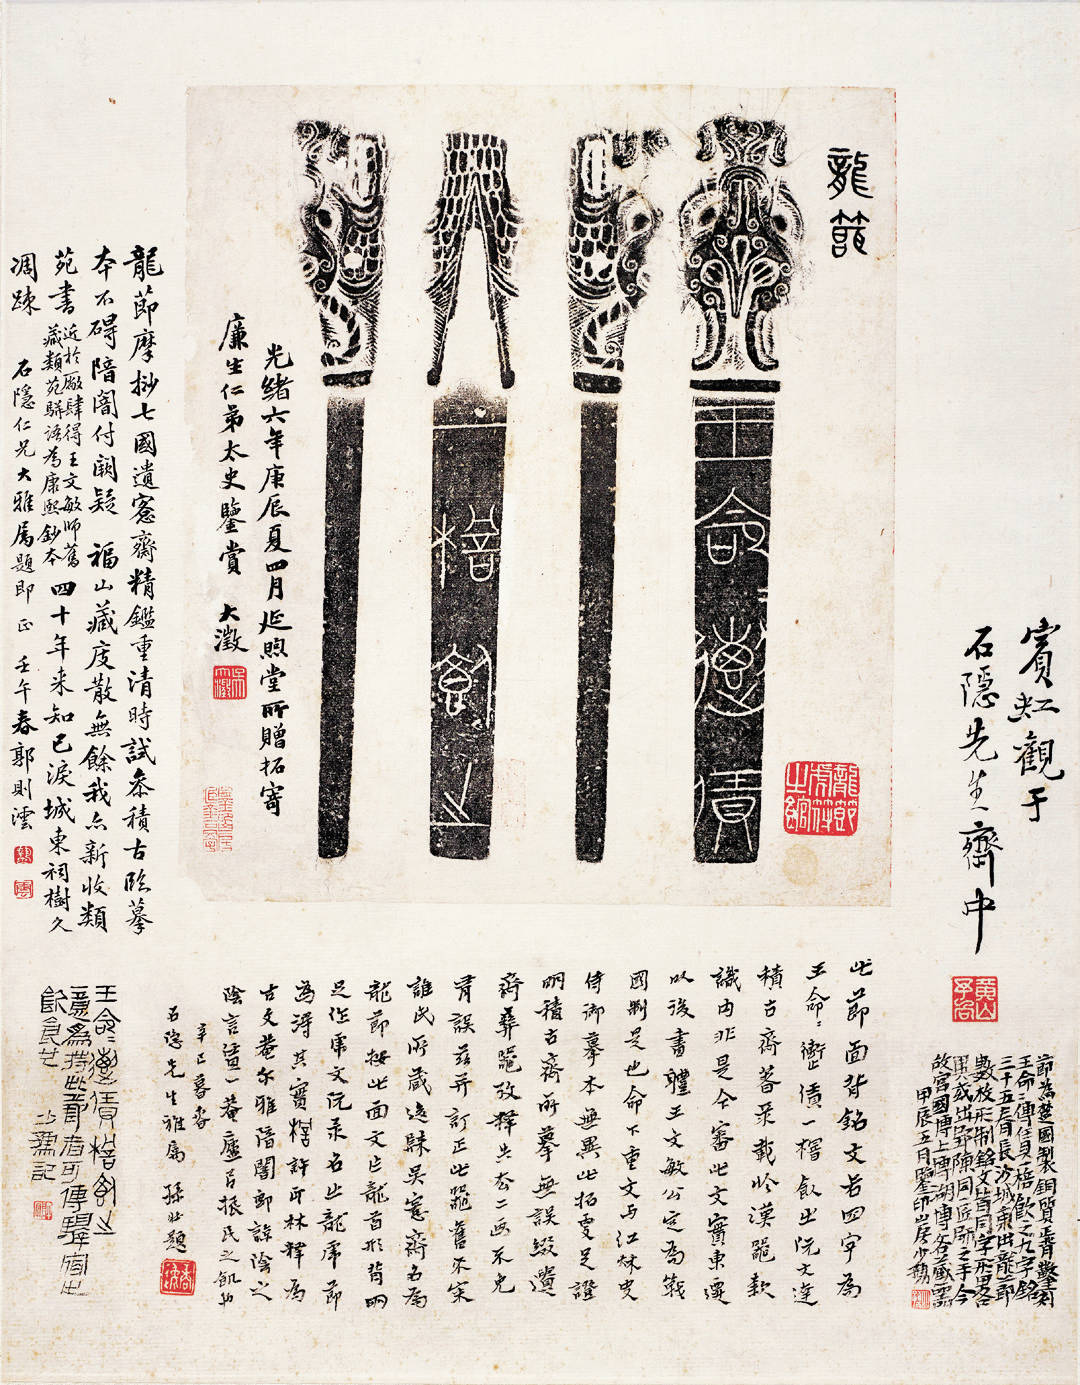 龍節
王命
傳賃
一棓飲之
光緒六年庚辰夏四月延煦堂所贈拓寄
廉生仁弟太史鑒賞 大澂
龍節虎符之館
賓虹觀于
石隱先生齋中
黃山予向
龍節摩挲七國遺窓齋精鑑重清時試參積古臨摹
本不碍陪闇付闕疑 福山藏庋散無餘我亦新收類
苑書近於厰肆得王文敏師舊藏類苑駢語為康熙鈔本四十年来知己淚城東祠樹久
凋踈 石隱仁兄大雅属題即正 壬午春郭則澐
此節面背銘文者四字為
王命二 傳賃一棓飲之阮文達
積古齋著录載吟漢器款
識内非是今審此文實東遷
以後書體王文敏公定為戰
國制是也命下重文与江林史
侍御摹本無異此拓更足證
明積古齋所摹無誤綴遺
齋彝器攷釋共夲二函不免
有誤茲并訂正此器舊不寀
誰氏所藏逸歸吴窓齋名為
龍節按此面文上龍首形背明
足作
古文菴尔雅陪闇郭誤陰之
辛巳暮春
石隱先生雅属 孫壯題
節為楚國製銅質青敷刻
王命二傳賃一棓飲之九字銘
三十五年長沙城東出龍節
數枚形制銘文皆同字形畧各
異或出野陳同一匠師之手今
故宮國博上博湖博各藏器
甲辰五月鑒印山房少鶴
王命二傳賃一棓飲之
意為持此節者可傳驛宿止
飲食也 少鶴記